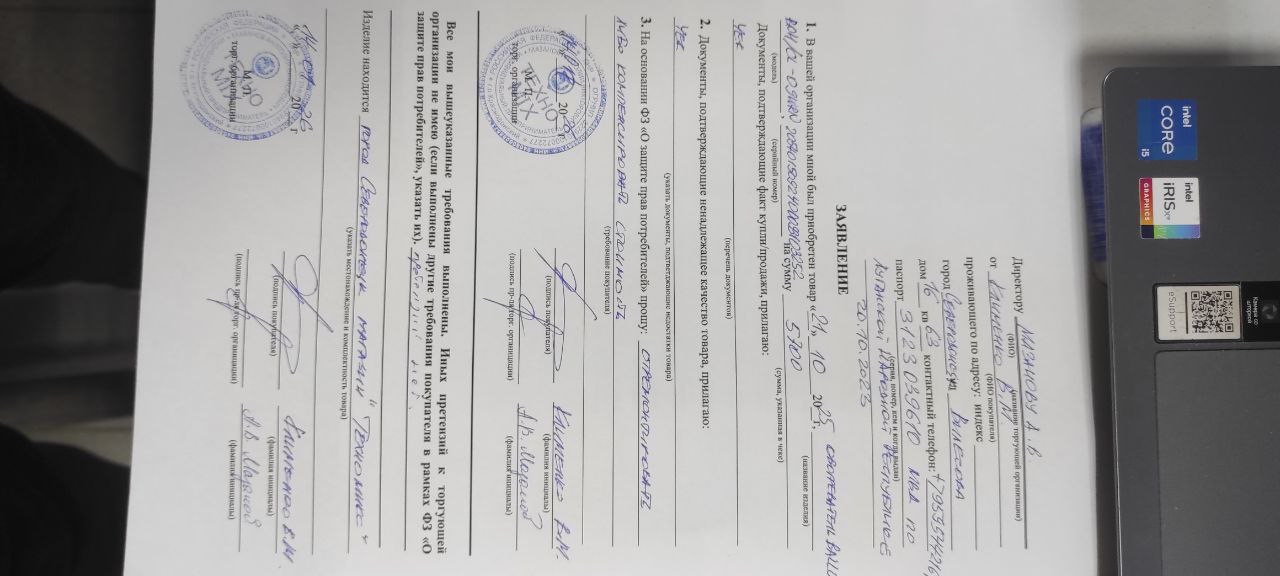 Директору МАЗАНОВУ А. В.
(ФИО) (название торгующей организации)
от КЛИМЕНКО В.М.
(ФИО покупателя)
проживающего по адресу: индекс
город
дом 16 кв 63 контактный телефон:
паспорт 3123 039610 МВД ПО
(серия, номер, кем и когда выдан)
ЛУГАНСКОЙ НАРОДНОЙ РЕСПУБЛИКЕ
20.10.2023
ЗАЯВЛЕНИЕ
1. В вашей организации мной был приобретен товар «21» 10 2025 г.
(название изделия)
на сумму 5700
(модель) (серийный номер) (сумма, указанная в чеке)
Документы, подтверждающие факт купли/продажи, прилагаю:
чек
(перечень документов)
2. Документы, подтверждающие ненадлежащее качество товара, прилагаю:
чек
(указать документы, подтверждающие недостатки товара)
3. На основании ФЗ «О защите прав потребителей» прошу: ОТРЕМОНТИРОВАТЬ
ЛИБО КОМПЕНСИРОВАТЬ СТОИМОСТЬ
(требование покупателя)
КЛИМЕНКО В.М.
(подпись покупателя) (фамилия инициалы)
20 г.
М.П.
торг. организации
ТЕХНО МИКС
А.В. Мазанов
(подпись пр. торг. организации) (фамилия инициалы)
Все мои вышеуказанные требования выполнены. Иных претензий к торгующей
организации не имею (если выполнены другие требования покупателя в рамках ФЗ «О
защите прав потребителей», указать их). претензий нет.
Изделие находится город Северодонецк магазин "Техномикс"
(указать местонахождение и комплектность товара)
Клименко В.М.
(подпись покупателя) (фамилия инициалы)
г.
М.П.
торг. организации
ТЕХНО МИКС
А.В. Мазанов
(подпись пр. торг. организации) (фамилия инициалы)
intel
CORE
i5
intel
iRISxe
GRAPHICS
eSupport